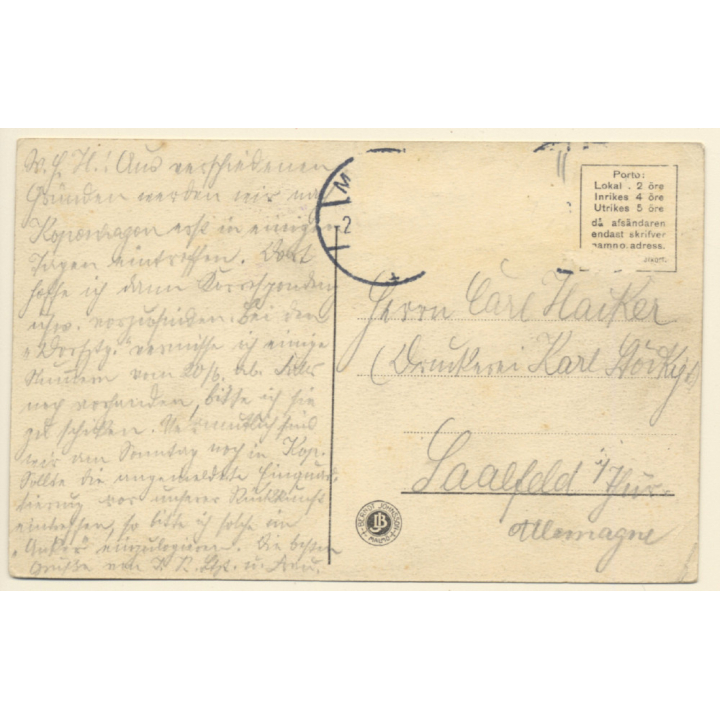 W. H. H.! Aus verschiedenen
Gründen werden wir nach
Kopenhagen erst in einigen
Tagen eintreffen. Dort
hoffe ich dann Korrespondenz
usw. vorzufinden. Bei den
"Dorfztg." vermisse ich einige
Numern vom 20/6. ab. Falls
noch vorhanden, bitte ich sie
zu schicken. Vermutlich sind
wir am Sonntag noch in Kop.
Sollte die angemeldete Einquar-
tierung vor unserer Rückkunft
eintreffen, so bitte ich solche im
"Anker" einzulogieren. Die besten
Grüße von u. Frau.
M
2
Porto:
Lokal . 2 öre
Inrikes 4 öre
Utrikes 5 öre
då afsändaren
endast skrifver
namn o. adress.
Herrn Carl Haiker
(Druckerei Karl
Saalfeld i/Thür.
Allemagne
HERNOT JOHNSSON
JB
MALMÖ